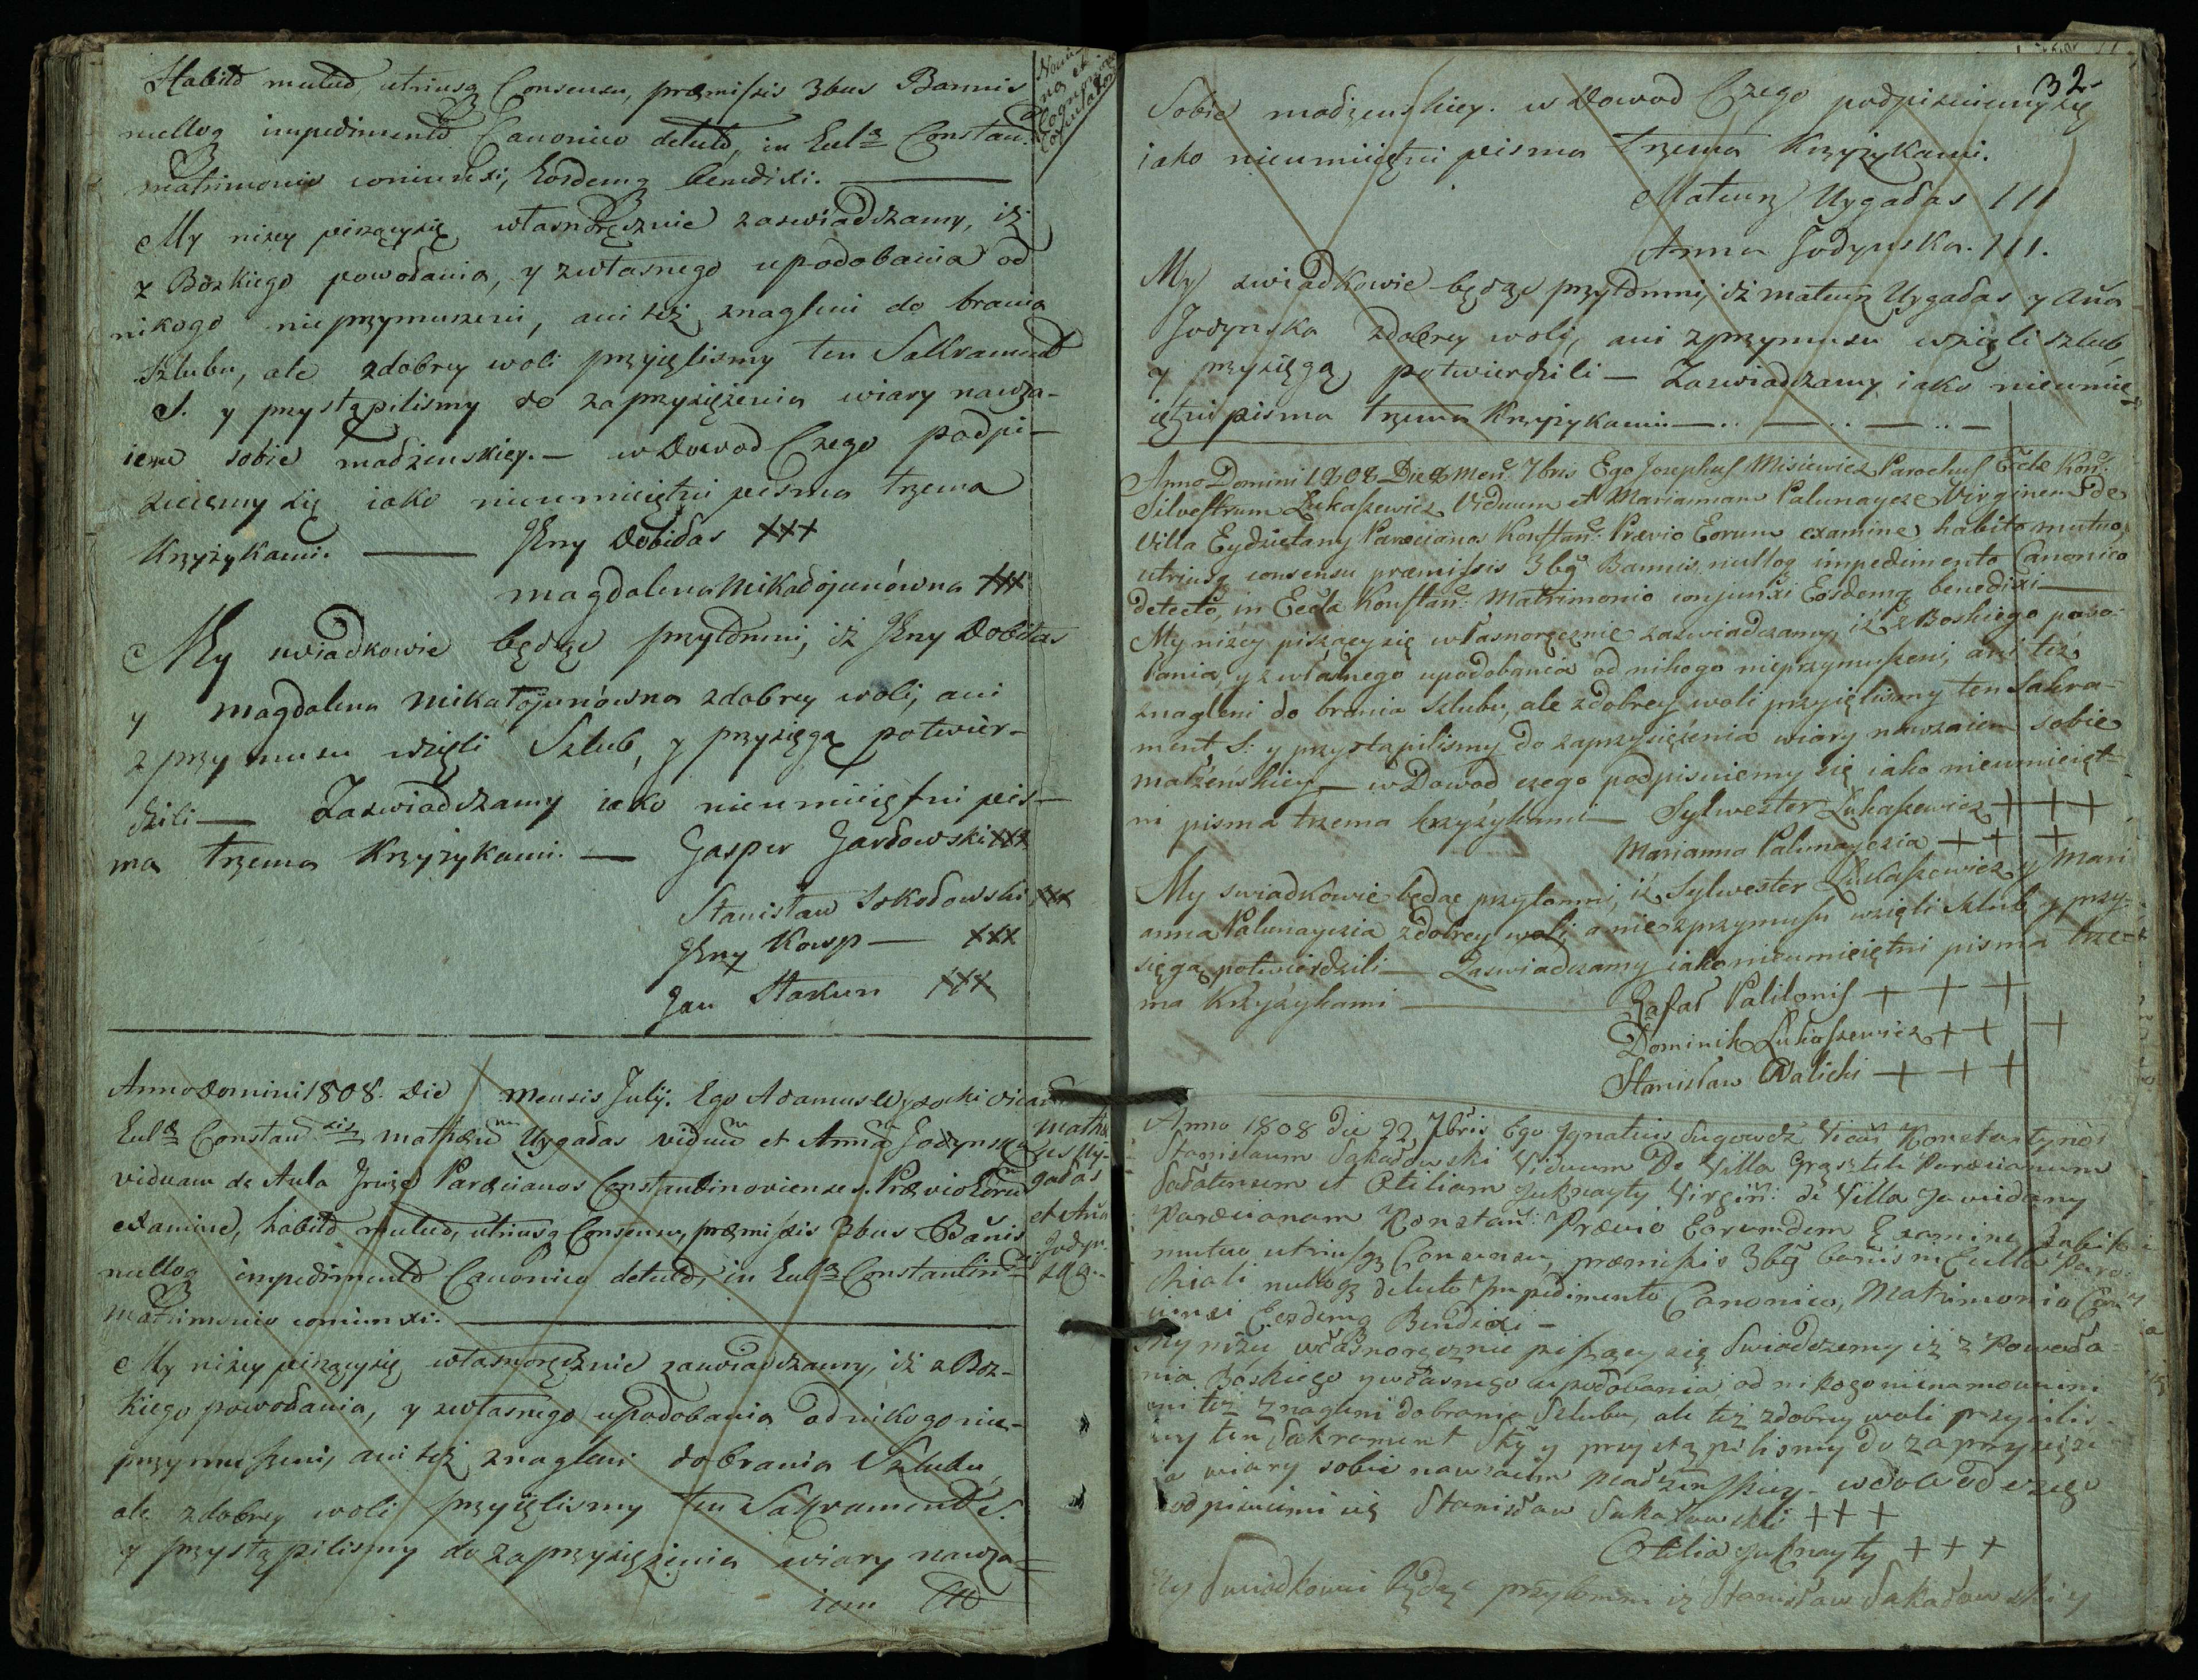 Habito mutuo, utriusq Consensu, præmissis 3bus Bannis
nulloq impedimento Canonico detecto, in Eccla Constan:
Matrimonio coniunxi, Eosdemq benedixi. —
My niżey piszący się własnoręcznie zaswiadczamy, iż
z Bozkiego powołania, y z własnego upodobania od
nikogo nieprzymuszeni, ani też znagleni do brania
Szlubu, ale z dobrey woli przyięlismy ten Sakrament
S. y przystąpilismy do zaprzysiężenia wiary nawza-
iem sobie małżenskiey. — w Dowod Czego podpi-
suiemy się iako nieumieiętni pisma trzema
Krzyżykami. — Jerzy Dobiłas +++
Magdalena Mikołojunówna +++
My swiadkowie będąc przytomni, iż Jerzy Dobiłas
y Magdalena Mikołojunówna z dobrey woli, ani
z przymusu wzięli Szlub, y przysięgą potwier-
dzili — Zaswiadczamy iako nieumieiętni pis-
ma trzema Krzyżykami. — Gasper Jardowski +++
Stanisław Sokołowski +++
Jerzy — +++
Jan Staxun +++
Anno Domini 1808. Die Mensis Julij. Ego Adamus Wysocki
Eccla Constan Matheum Uygałas viduum et Annam Jodynska
viduam de Aula Paræcianos Constantinovienses. Prævio Eorum
examine, habito mutuo, utriusq Consensu, præmissis 3bus Bañis
nulloq impedimento Canonico detecto, in Eccla Constantin
Matrimonio coniunxi. —
Mathe
us Uy-
gałas
et Aña
Jodyn-
ska.
My niżey piszący się własnoręcznie zaswiadczamy, iż z Boz-
kiego powołania, y z własnego upodobania od nikogo nie-
przymuszeni, ani też znagleni do brania Szlubu
ale z dobrey woli przyięlismy ten Sakrament S.
y przystąpilismy do zaprzysiężenia wiary nawza-
iem
32
Sobie małżenskiey. w Dowod Czego podpisuiemy się
iako nieumieiętni pisma trzema Krzyżykami.
Mateusz Uygałas III
Anna Jodynska. III.
My swiadkowie będąc przytomni, iż Mateusz Uygałas y Aña
Jodynska z dobrey woli, ani z przymusu wzięli szlub,
y przysięgą potwierdzili — Zaswiadczamy iako nieumie-
iętni pisma trzema Krzyżykami — .. — .. — .. —
Anno Domini 1808 Die 8 Menˢ 7bris Ego Josephus Misiewicz Parochus Eccle Konˢ:
Silvestrum Lukaszewicz Viduum et Mariannam Palunaycze Virginem de
Villa Eydziełany Paræcianos Konstanˢ: Prævio Eorum examine, habito mutuo,
utriusq consensu præmissis 3bq Bannis, nulloq impedimento Canonico
detecto, in Eccla Konstanˢ: Matrimonio conjunxi Eosdemq benedixi —
My niżey piszący się własnoręcznie zaswiadczamy, iż z Boskiego powo-
łania, y z własnego upodobania od nikogo nieprzymuszeni, ani też
znagleni do brania szlubu, ale z dobrey woli przyięlismy ten Sakra-
ment S: y przystąpilismy do zaprzysiężenia wiary nawzaiem sobie
małżenskiey — w Dowod czego podpisuiemy się iako nieumieięt-
ni pisma trzema krzyżykami — Sylwester Lukaszewicz + + +
Marianna Palunayczia + + +
My swiadkowie będąc przytomni, iż Sylwester Lukaszewicz y Mari-
anna Palunaycia z dobrey woli, a nie z przymusu wzięli Szlub y przy-
sięgą potwierdzili — Zaswiadczamy iako nieumieiętni pisma trze-
ma Krzyżykami — Rafał Palilonis + + +
Dominik Lukaszewicz + + +
Stanislaw Walicki + + +
Anno 1808 die 22 7bris Ego Ignatius Vicañ Konstantynoˢ
Stanislaum Sakałowski Viduum De Villa Paræcianum
et Otiliam Juknayty Virgiñ: de Villa Jawidany
Paræcianam Konstanˢ: Prævio Eorumdem Examine habito
mutuo utriusqz Consensu, præmissis 3bq bañis in Eccla Paro-
chiali nulloqz detecto Impedimento Canonico, Matrimonio Con-
iunxi Eosdemq Benedixi —
My niżey własnoręcznie piszący się Swiadczemy iż z Powoła-
nia Boskiego y własnego upodobania od nikogo nienamowieni
ani też znagleni do brania Szlubu, ale też z dobrey woli przyięlis-
my ten Sakrament Sty y przystąpilismy do zaprzysięże
ia wiary sobie nawzaiem Małżenskiey - w dowod czego
podpisuiemi się Stanisław Sakałowski + + +
Otilia Juknayty + + +
My Swiadkowie będąc przytomni iż Stanisław Sakałowski y